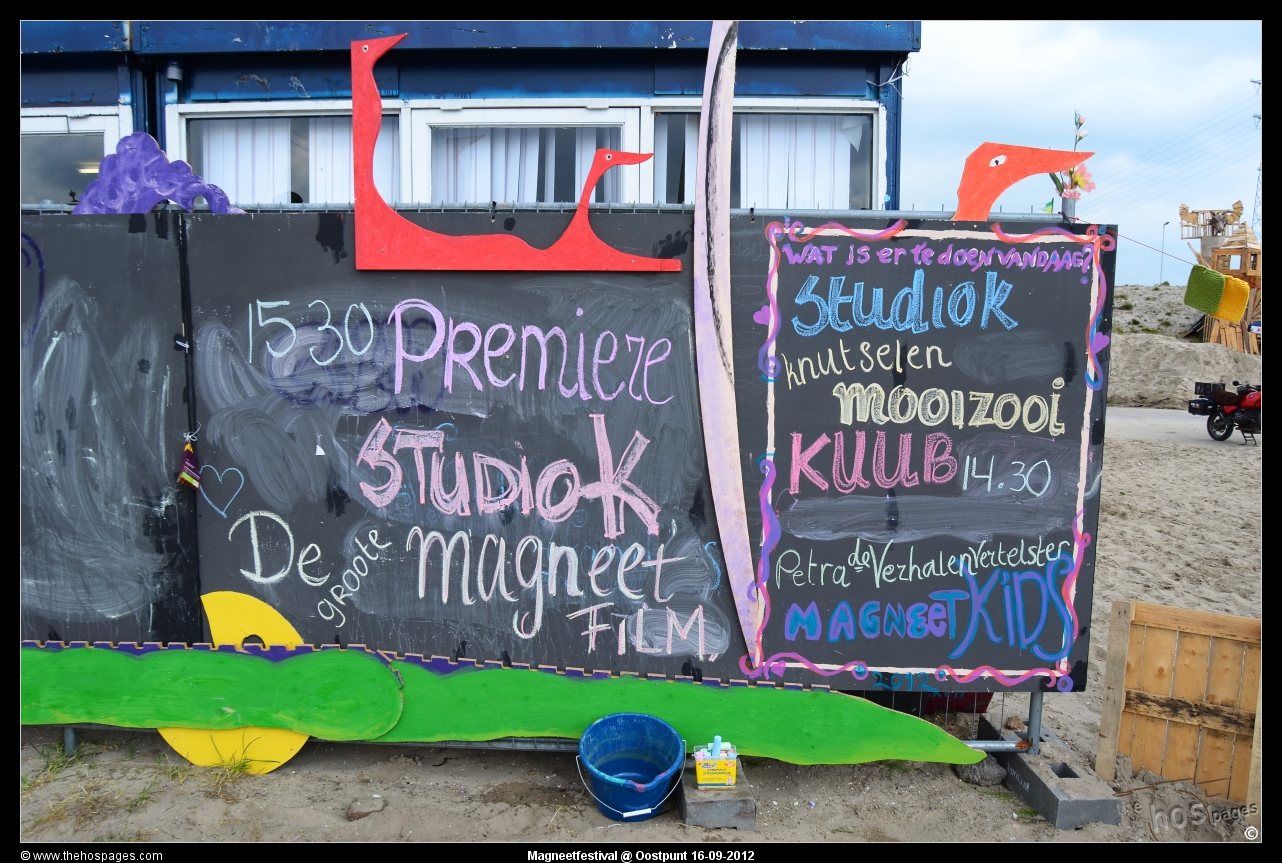 15 30 PREMIERE
STUDIOK
De groote magneet
FILM,
WAT is er te doen VANDAAG?
STUDIOK
knutselen
MOOIZOOI
KUUB 14.30
Petra de Verhalenvertelster
MAGNEET KIDS
2012
the hospages
©
© www.thehospages.com
Magneetfestival @ Oostpunt 16-09-2012